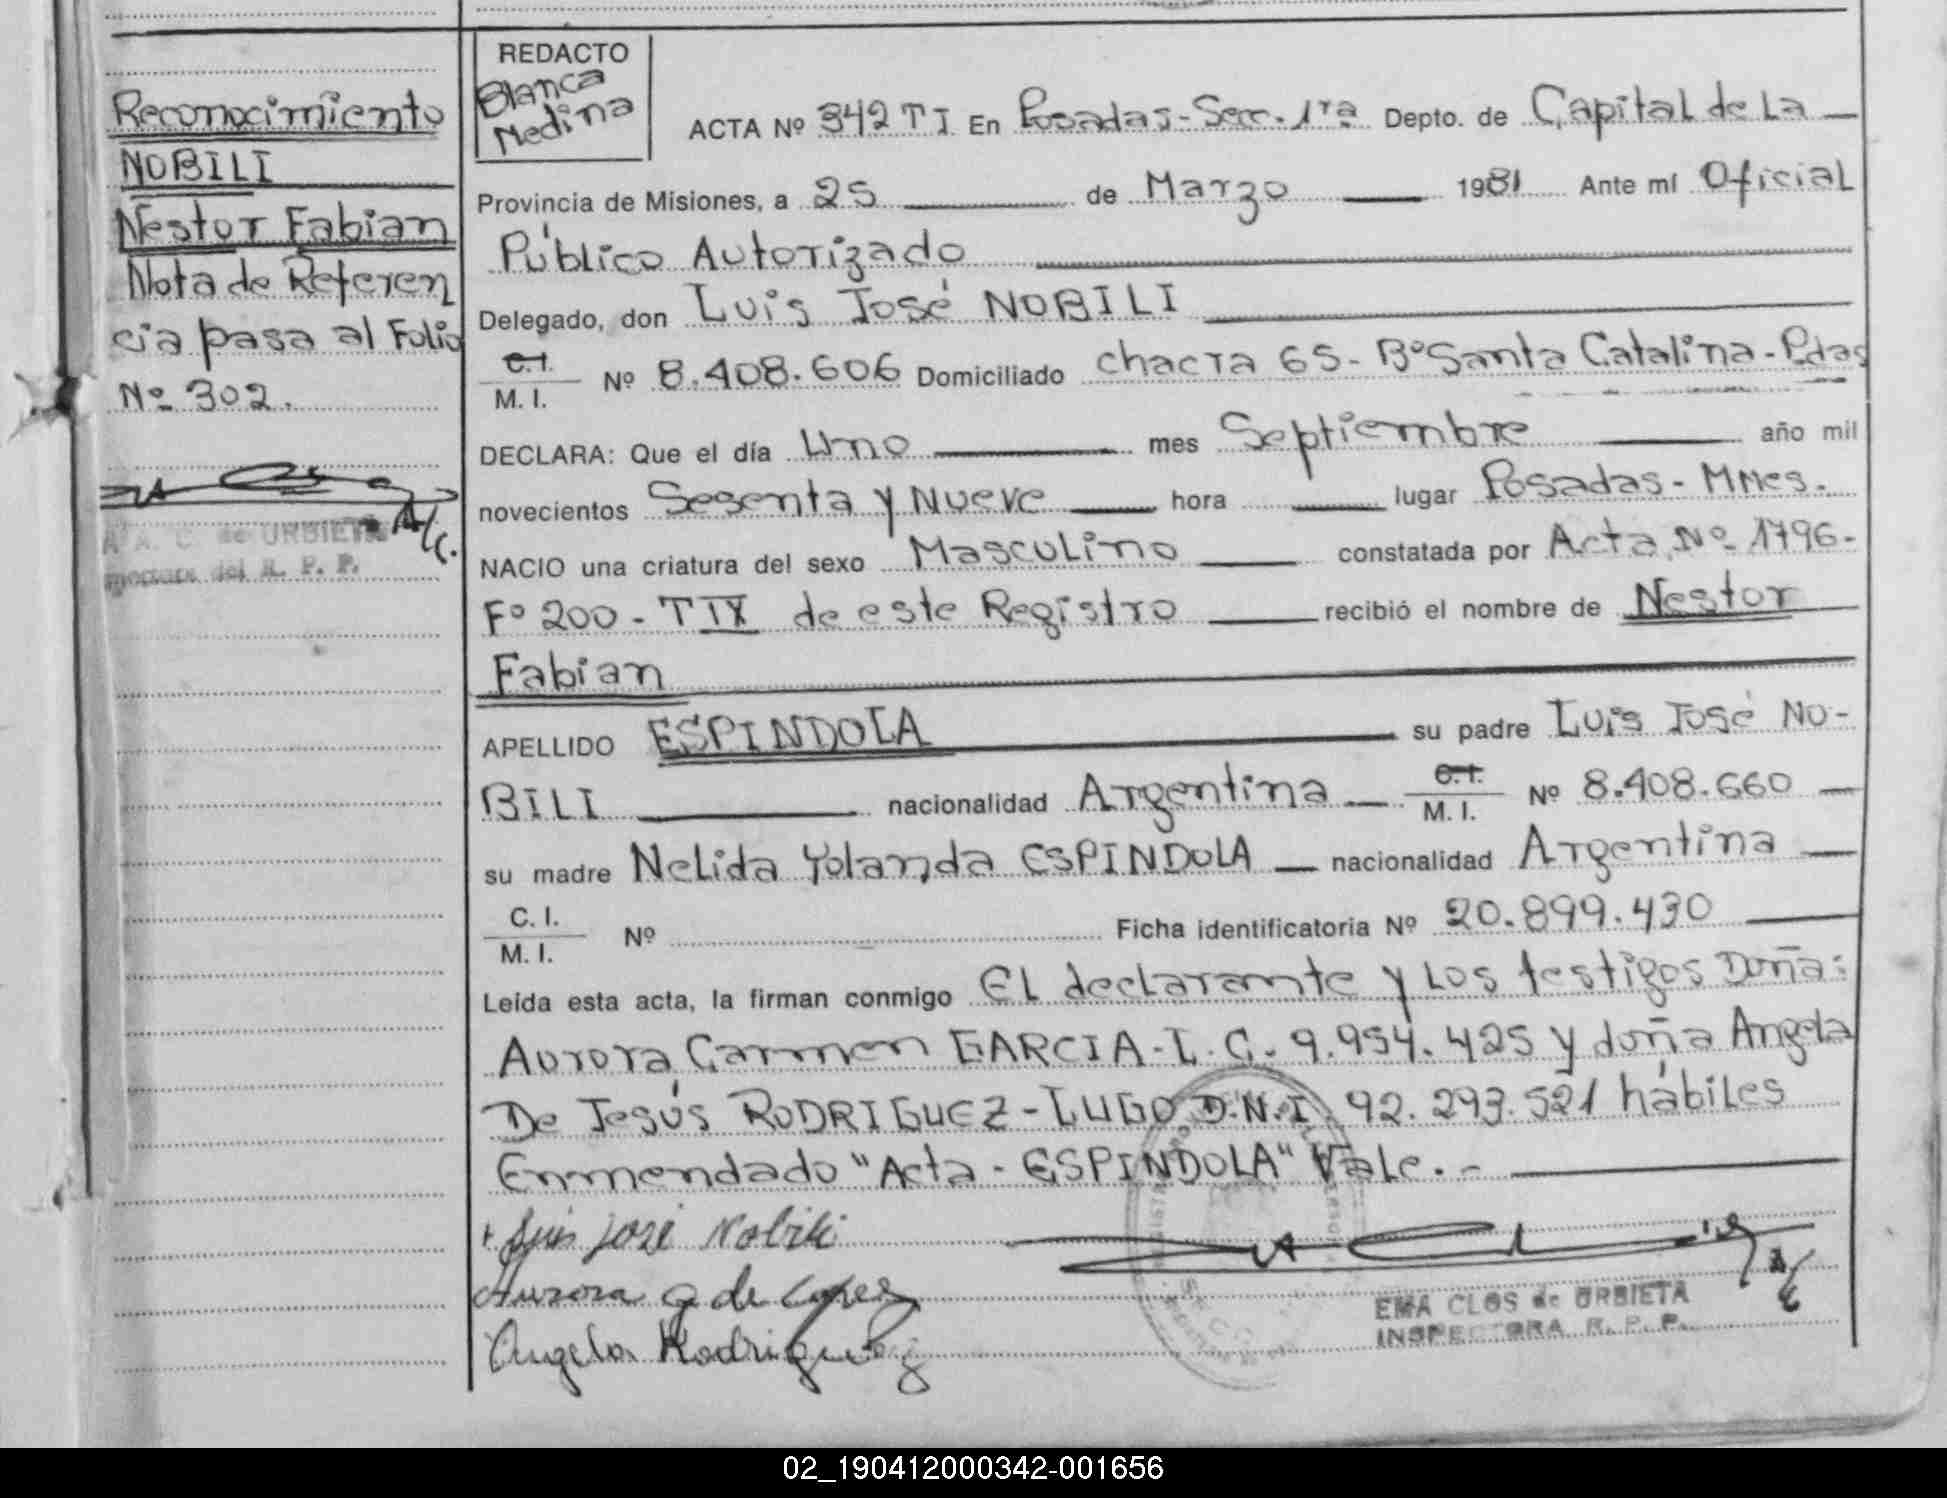 Reconocimiento
NOBILI
Nestor Fabian
Nota de Referen
cia pasa al Folio
Nº 302.
A/C.
A. C. de URBIETA
R. P. P.
REDACTO
Blanca
Medina
ACTA Nº 342 T I En Posadas - Secc. 1ra Depto. de Capital de La
Provincia de Misiones, a 25 de Marzo 1981 Ante mí Oficial
Público Autorizado
Delegado, don Luis José NOBILI
C.I. M. I. Nº 8.408.606 Domiciliado chacra 65 - Bº Santa Catalina - Pdas
DECLARA: Que el día Uno mes Septiembre año mil
novecientos Sesenta y Nueve hora lugar Posadas - Mnes.
NACIO una criatura del sexo Masculino constatada por Acta Nº 1796 -
Fº 200 - T IX de este Registro recibió el nombre de Nestor
Fabian
APELLIDO ESPINDOLA su padre Luis José NO-
BILI nacionalidad Argentina C.I. M. I. Nº 8.408.660
su madre Nelida Yolanda ESPINDOLA nacionalidad Argentina
C. I. M. I. Nº Ficha identificatoria Nº 20.899.430
Leída esta acta, la firman conmigo El declarante y los testigos Doña:
Aurora Carmen GARCIA - L. C. 9.954.425 y doña Angela
De Jesús RODRIGUEZ - LUGO D.N.I. 92.293.521 hábiles
Enmendado "Acta - ESPINDOLA" Vale. -
Luis José Nobili
Aurora G de Lopez
Angela Rodriguez
A/C
EMA CLOS de URBIETA
INSPECTORA R. P. P.
02_190412000342-001656